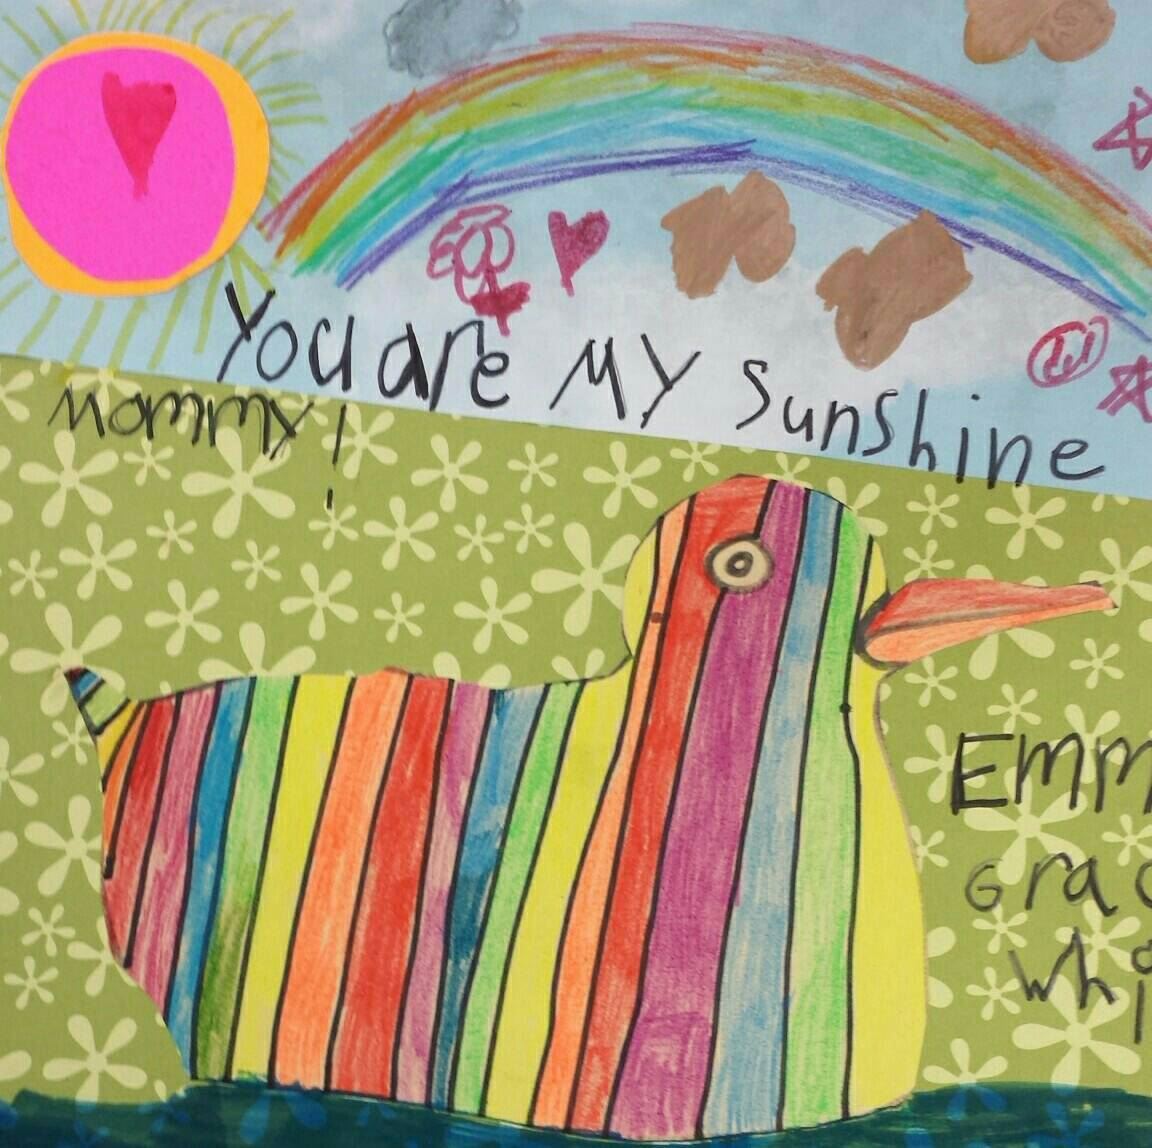 You are My sunshine
Mommy!
Emm
Grac
Whi